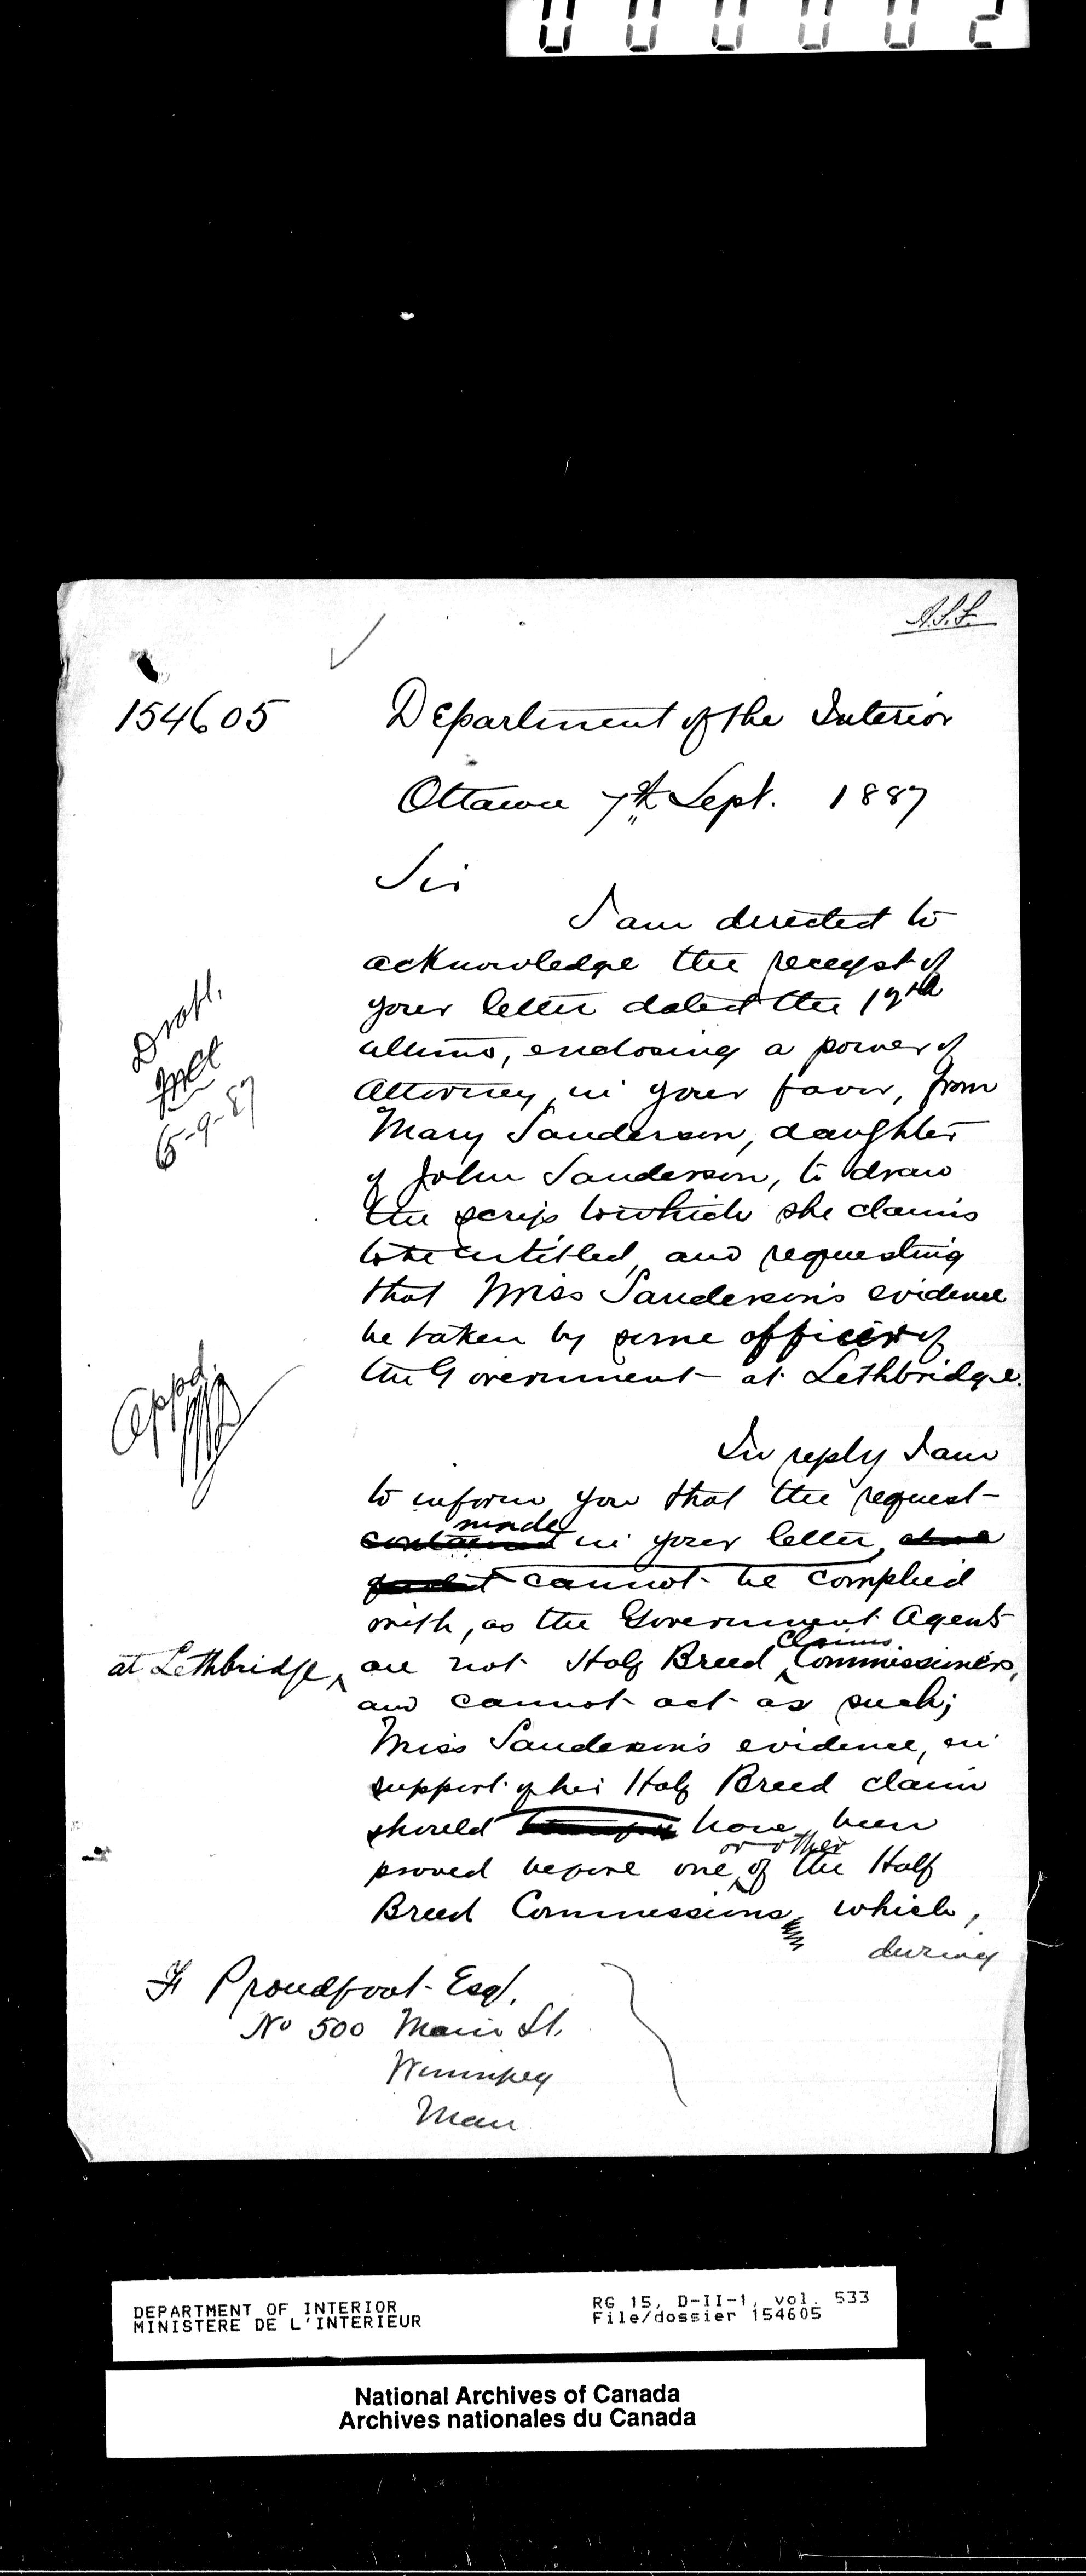 000002
A.S.S.
154605
Department of the Interior
Ottawa 7th Sept. 1887
Sir
I am directed to
acknowledge the receipt of
your letter dated the 17th
ultimo, enclosing a power of
Attorney, in your favor, from
Mary Sanderson, daughter
of John Sanderson, to draw
the scrip to which she claims
to be entitled, and requesting
that Miss Sanderson's evidence
be taken by some officer of
the Government at Lethbridge.
Draft,
6-9-87
Appd.
In reply I am
to inform you that the request
made
contained in your letter,
cannot be complied
with, as the Government Agents
Claims
at Lethbridge, are not Half Breed Commissioners,
and cannot act as such;
Miss Sanderson's evidence, in
support of her Half Breed claim
should have been
or other
proved before one of the Half
Breed Commissions, which,
during
F Proudfoot Esq.
No 500 Main St.
Winnipeg
Man.
DEPARTMENT OF INTERIOR
MINISTERE DE L'INTERIEUR
RG 15, D-II-1, vol. 533
File/dossier 154605
National Archives of Canada
Archives nationales du Canada